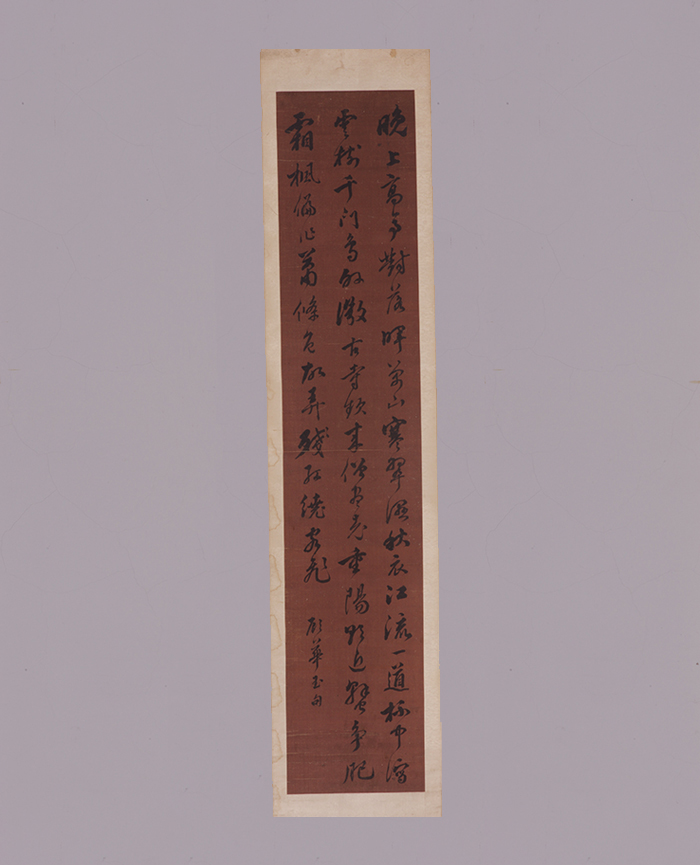 晚上高亭對落暉萬山寒翠濕秋衣江流一道杯中瀉
雲樹千門鳥外微古寺頻來僧盡老重陽欲近蟹爭肥
霜楓偏作蕭條色故弄殘紅繞客飛
顧華玉句